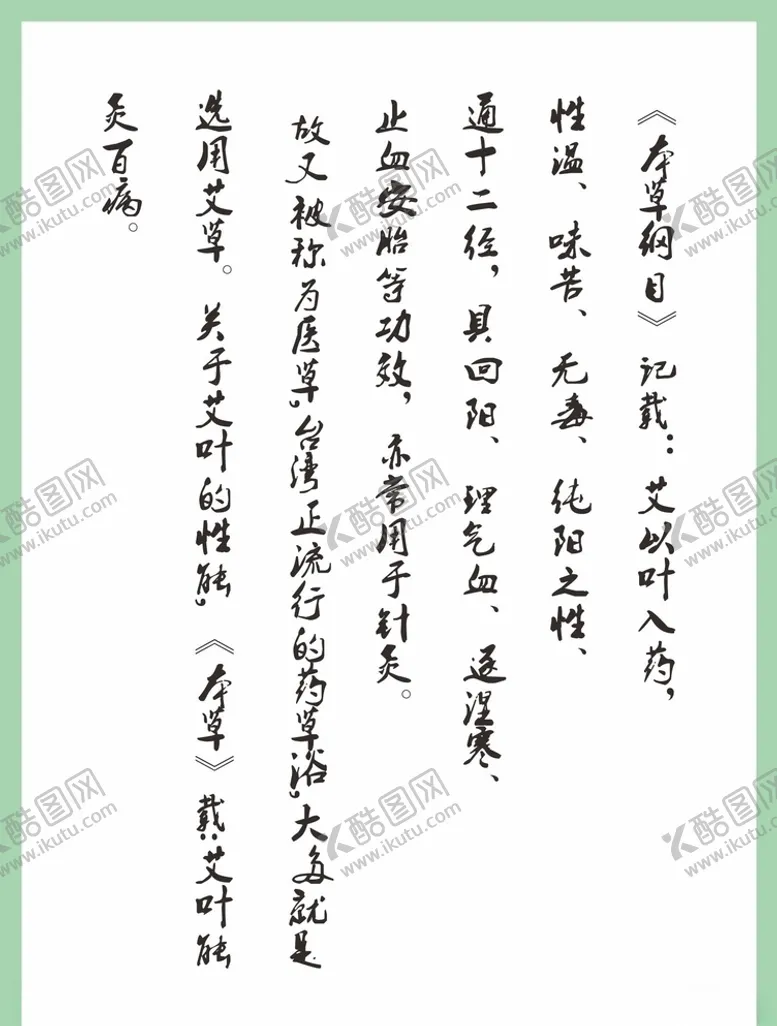 《本草纲目》记载：艾以叶入药，
性温、味苦、无毒、纯阳之性、
通十二经，具回阳、理气血、逐湿寒、
止血安胎等功效，亦常用于针灸。
故又被称为医草，台湾正流行的药草浴，大多就是
选用艾草。关于艾叶的性能，《本草》载：艾叶能
灸百病。
酷图网
www.ikutu.com
酷图网
www.ikutu.com
酷图网
www.ikutu.com
酷图网
www.ikutu.com
酷图网
www.ikutu.com
酷图网
www.ikutu.com
酷图网
www.ikutu.com
酷图网
www.ikutu.com
酷图网
www.ikutu.com